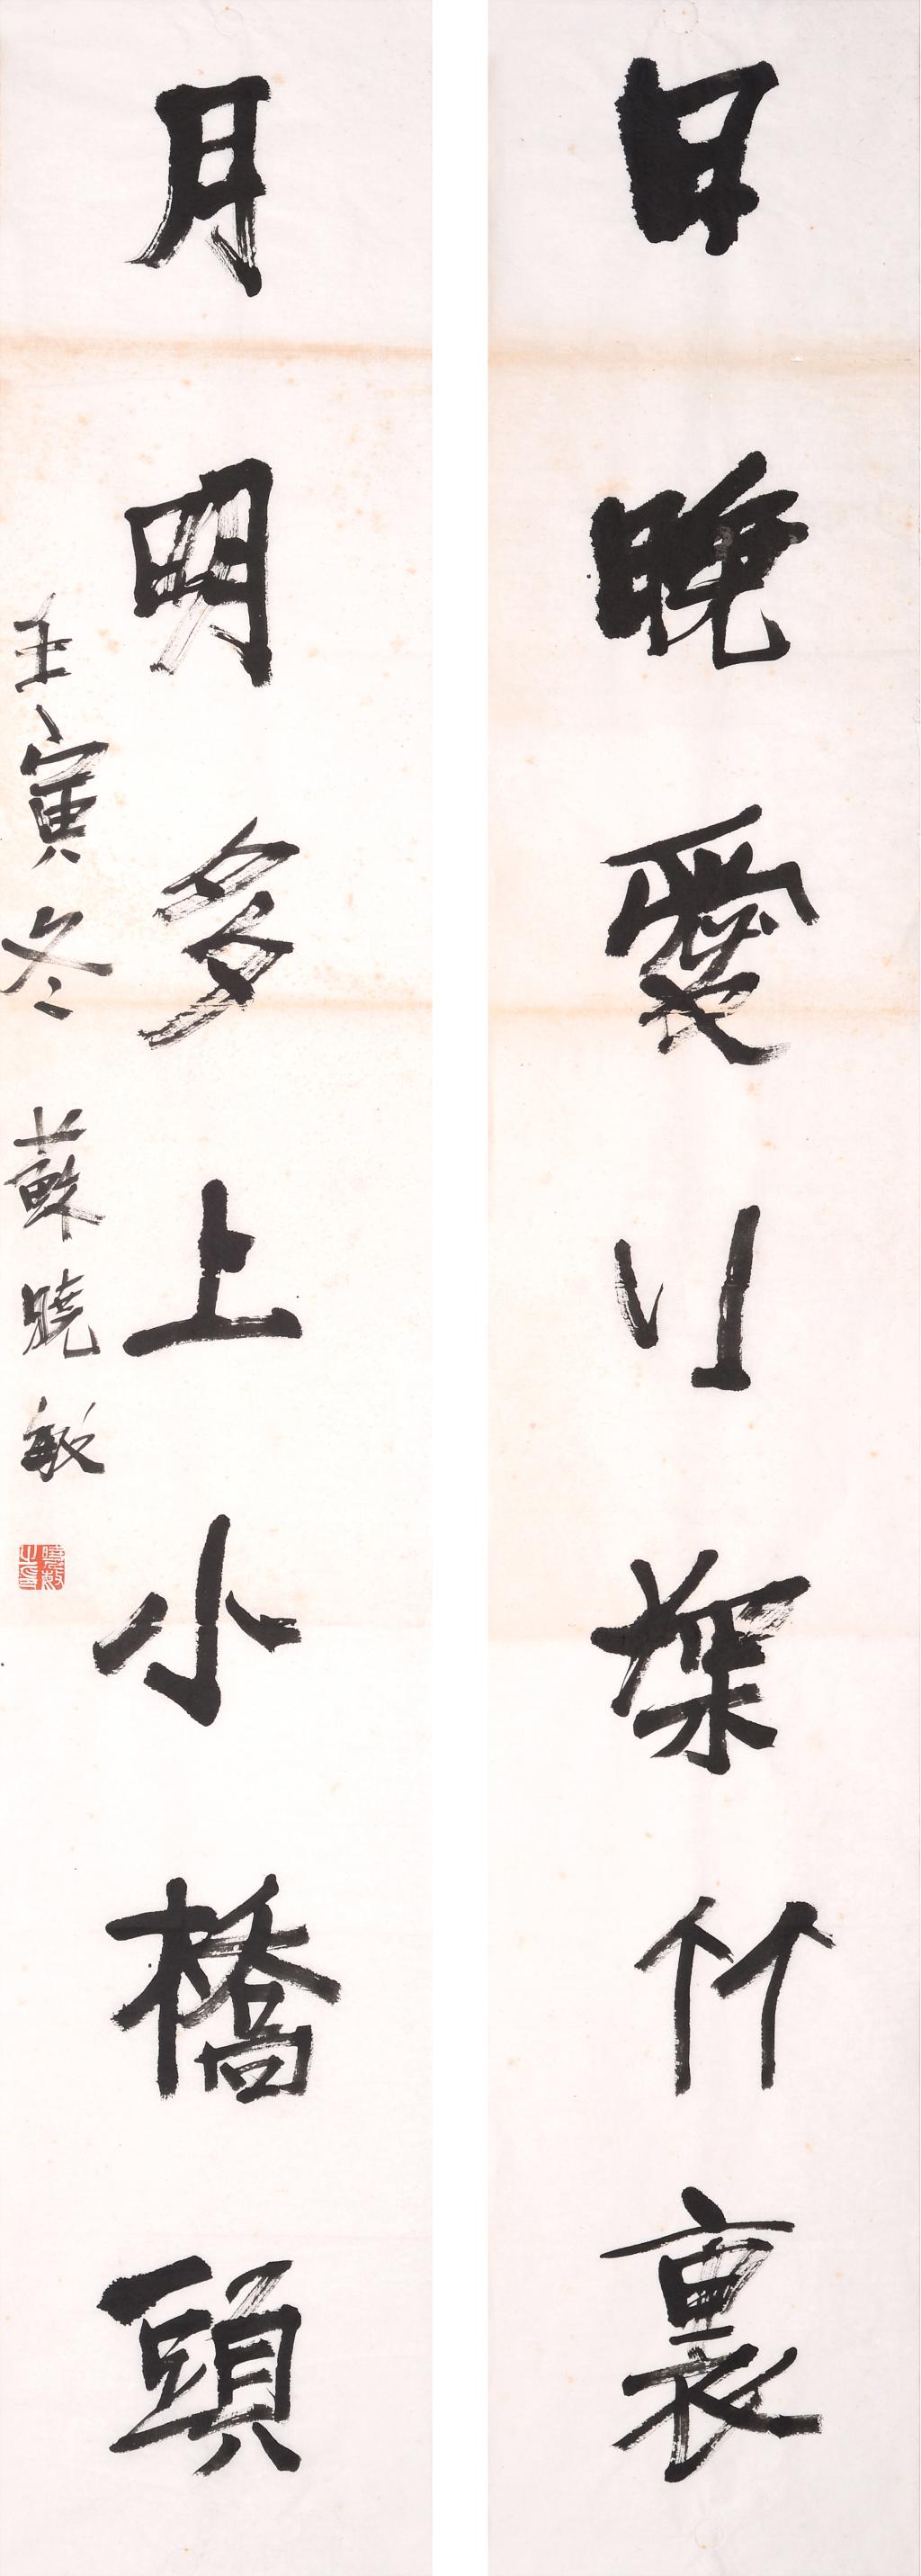 日晚愛行深竹裏
月明多上小橋頭
壬寅冬 蘇曉敏
曉敏之印